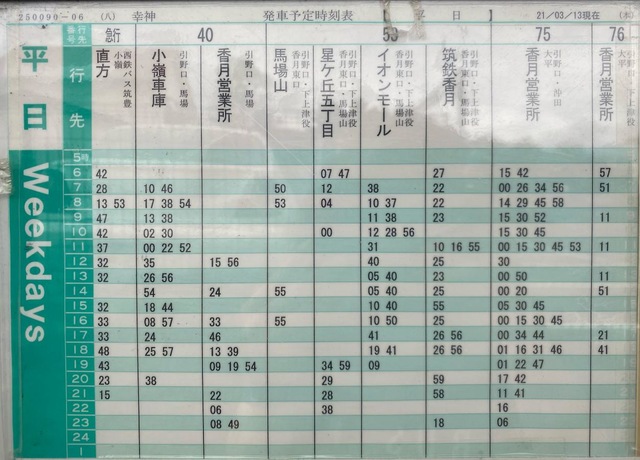 250090-06 (八) 幸神 発車予定時刻表 平日 】 21/03/13現在 (本)
番号 行先 急行 40 53 75 76
平日 Weekdays
行先
直方 西鉄バス筑豊 小嶺
小嶺車庫 引野口・馬場
香月営業所 引野口・馬場
馬場山 引野口・下上津役 香月東口
星ケ丘五丁目 引野口・下上津役 香月東口・馬場山
イオンモール 引野口・下上津役 香月東口・馬場山
筑鉄香月 引野口・下上津役 香月東口・馬場山
香月営業所 引野口・沖田 大平
香月営業所 大平
5時
6 42 07 47 27 15 42 57
7 28 10 46 50 12 38 22 00 26 34 56 51
8 13 53 17 38 54 53 04 10 37 22 14 29 45 58
9 47 13 38 11 38 23 15 30 52 11
10 42 02 30 00 12 28 56 15 30 45
11 37 00 22 52 31 10 16 55 00 15 30 45 53 11
12 32 35 15 56 40 25 30
13 32 26 56 05 40 23 00 50 11
14 54 24 55 05 40 25 00 20 51
15 32 18 44 10 40 55 05 30 45
16 33 08 57 33 55 10 50 25 00 15 30 45
17 33 24 46 41 26 56 00 34 44 21
18 48 25 57 13 39 19 41 26 56 01 16 31 46 41
19 43 09 19 54 34 59 09 01 22 47
20 23 38 29 59 17 42
21 15 22 28 58 11 41
22 06 38 16
23 08 49 18 06
24
1